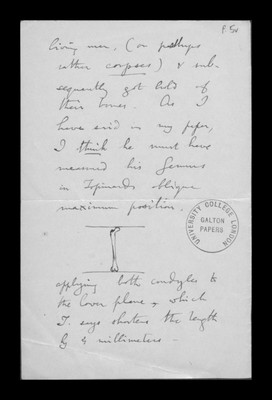 f. 5v
living men, (or perhaps
rather corpses) & sub-
sequently got hold of
their bones. As I
have said in my paper,
I think he must have
measured his femurs
in Topinard's oblique
maximum position.
UNIVERSITY COLLEGE LONDON
GALTON
PAPERS
applying both condyles to
the lower plane, which
T. says shortens the length
by 4 millimeters.